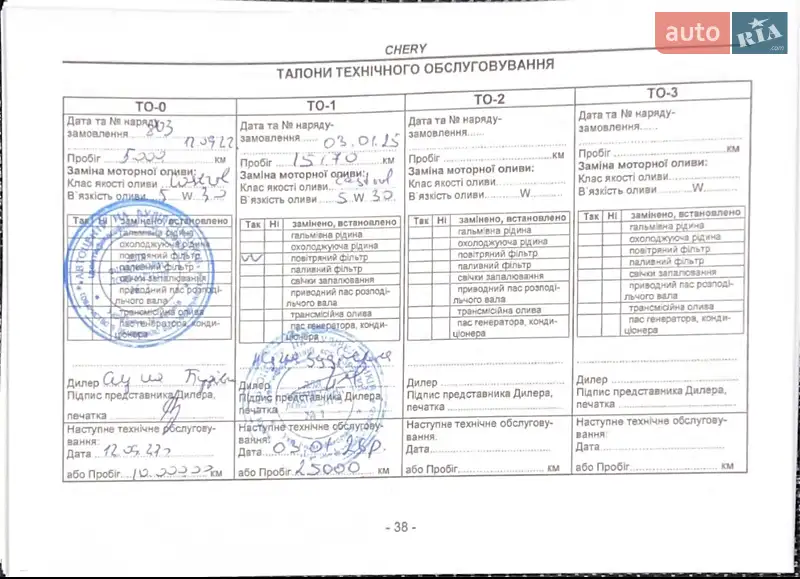 auto RIA.com
CHERY
ТАЛОНИ ТЕХНІЧНОГО ОБСЛУГОВУВАННЯ
ТО-0
Дата та № наряду-
замовлення 803
12.09.22
Пробіг 5000 км
Заміна моторної оливи:
Клас якості оливи
В`язкість оливи 5 W 30
Так Ні замінено, встановлено
гальмівна рідина
охолоджуюча рідина
повітряний фільтр
паливний фільтр
свічки запалювання
приводний пас розподі-
льчого вала
трансмісійна олива
пас генератора, конди-
ціонера
Дилер
Підпис представника Дилера,
печатка
Наступне технічне обслугову-
вання:
Дата
або Пробіг км
ТО-1
Дата та № наряду-
замовлення 03.01.25
Пробіг км
Заміна моторної оливи:
Клас якості оливи
В`язкість оливи 5 W 30
Так Ні замінено, встановлено
гальмівна рідина
охолоджуюча рідина
повітряний фільтр
паливний фільтр
свічки запалювання
приводний пас розподі-
льчого вала
трансмісійна олива
пас генератора, конди-
ціонера
Дилер
Підпис представника Дилера,
печатка
Наступне технічне обслугову-
вання:
Дата
або Пробіг 25000 км
ТО-2
Дата та № наряду-
замовлення
Пробіг км
Заміна моторної оливи:
Клас якості оливи
В`язкість оливи W
Так Ні замінено, встановлено
гальмівна рідина
охолоджуюча рідина
повітряний фільтр
паливний фільтр
свічки запалювання
приводний пас розподі-
льчого вала
трансмісійна олива
пас генератора, конди-
ціонера
Дилер
Підпис представника Дилера,
печатка
Наступне технічне обслугову-
вання.
Дата
або Пробіг км
ТО-3
Дата та № наряду-
замовлення
Пробіг км
Заміна моторної оливи:
Клас якості оливи
В`язкість оливи W
Так Ні замінено, встановлено
гальмівна рідина
охолоджуюча рідина
повітряний фільтр
паливний фільтр
свічки запалювання
приводний пас розподі-
льчого вала
трансмісійна олива
пас генератора, конди-
ціонера
Дилер
Підпис представника Дилера,
печатка
Наступне технічне обслугову-
вання:
Дата
або Пробіг км
- 38 -